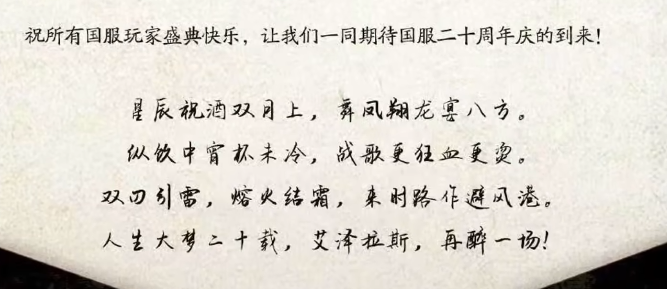 祝所有国服玩家盛典快乐，让我们一同期待国服二十周年庆的到来！
星辰祝酒双月上，舞凤翔龙宴八方。
纵饮中宵杯未冷，战歌更狂血更烫。
双刃引雷，熔火结霜，来时路作避风港。
人生大梦二十载，艾泽拉斯，再醉一场！